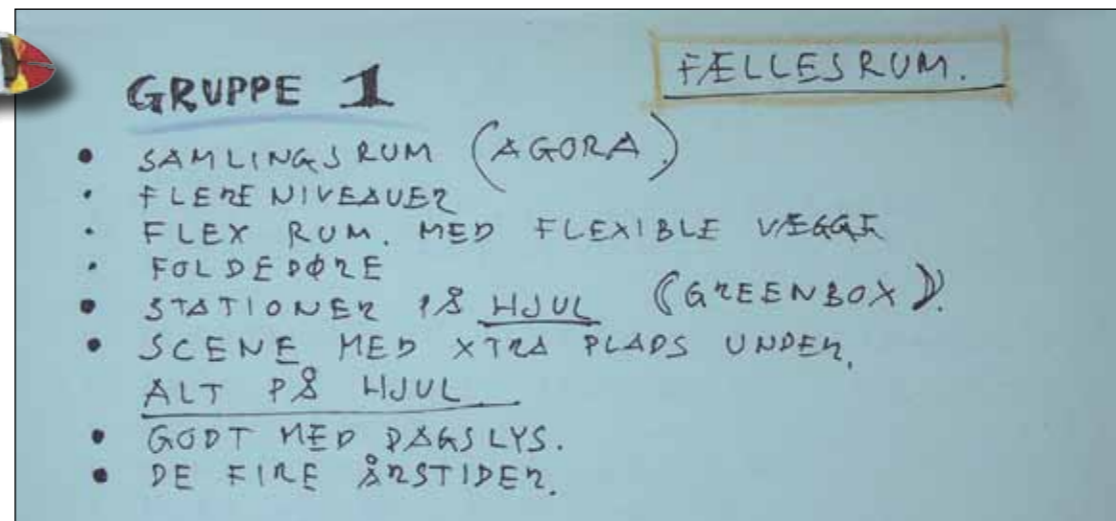 FÆLLESRUM.
GRUPPE 1
• SAMLINGSRUM (AGORA.)
• FLERE NIVEAUER
• FLEX RUM. MED FLEXIBLE VÆGGE
• FOLDEDØRE
• STATIONER PÅ HJUL ((GREENBOX)).
• SCENE MED XTRA PLADS UNDER.
ALT PÅ HJUL.
• GODT MED DAGSLYS.
• DE FIRE ÅRSTIDER.